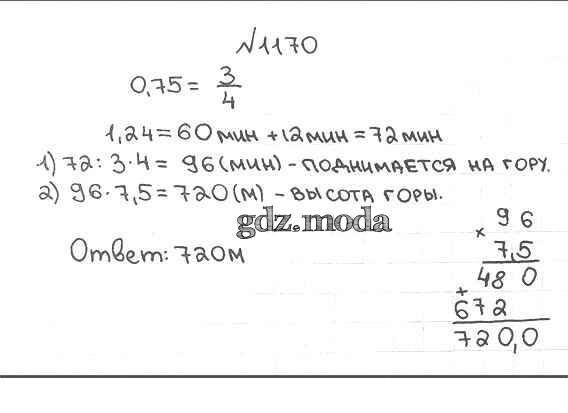 №1170
0,75 = 3/4
1,24 = 60 мин + 12 мин = 72 мин
1) 72 : 3 · 4 = 96 (мин) - поднимается на гору.
2) 96 · 7,5 = 720 (м) - высота горы.
gdz.moda
Ответ: 720м
96
×
7,5
480
+
672
720,0